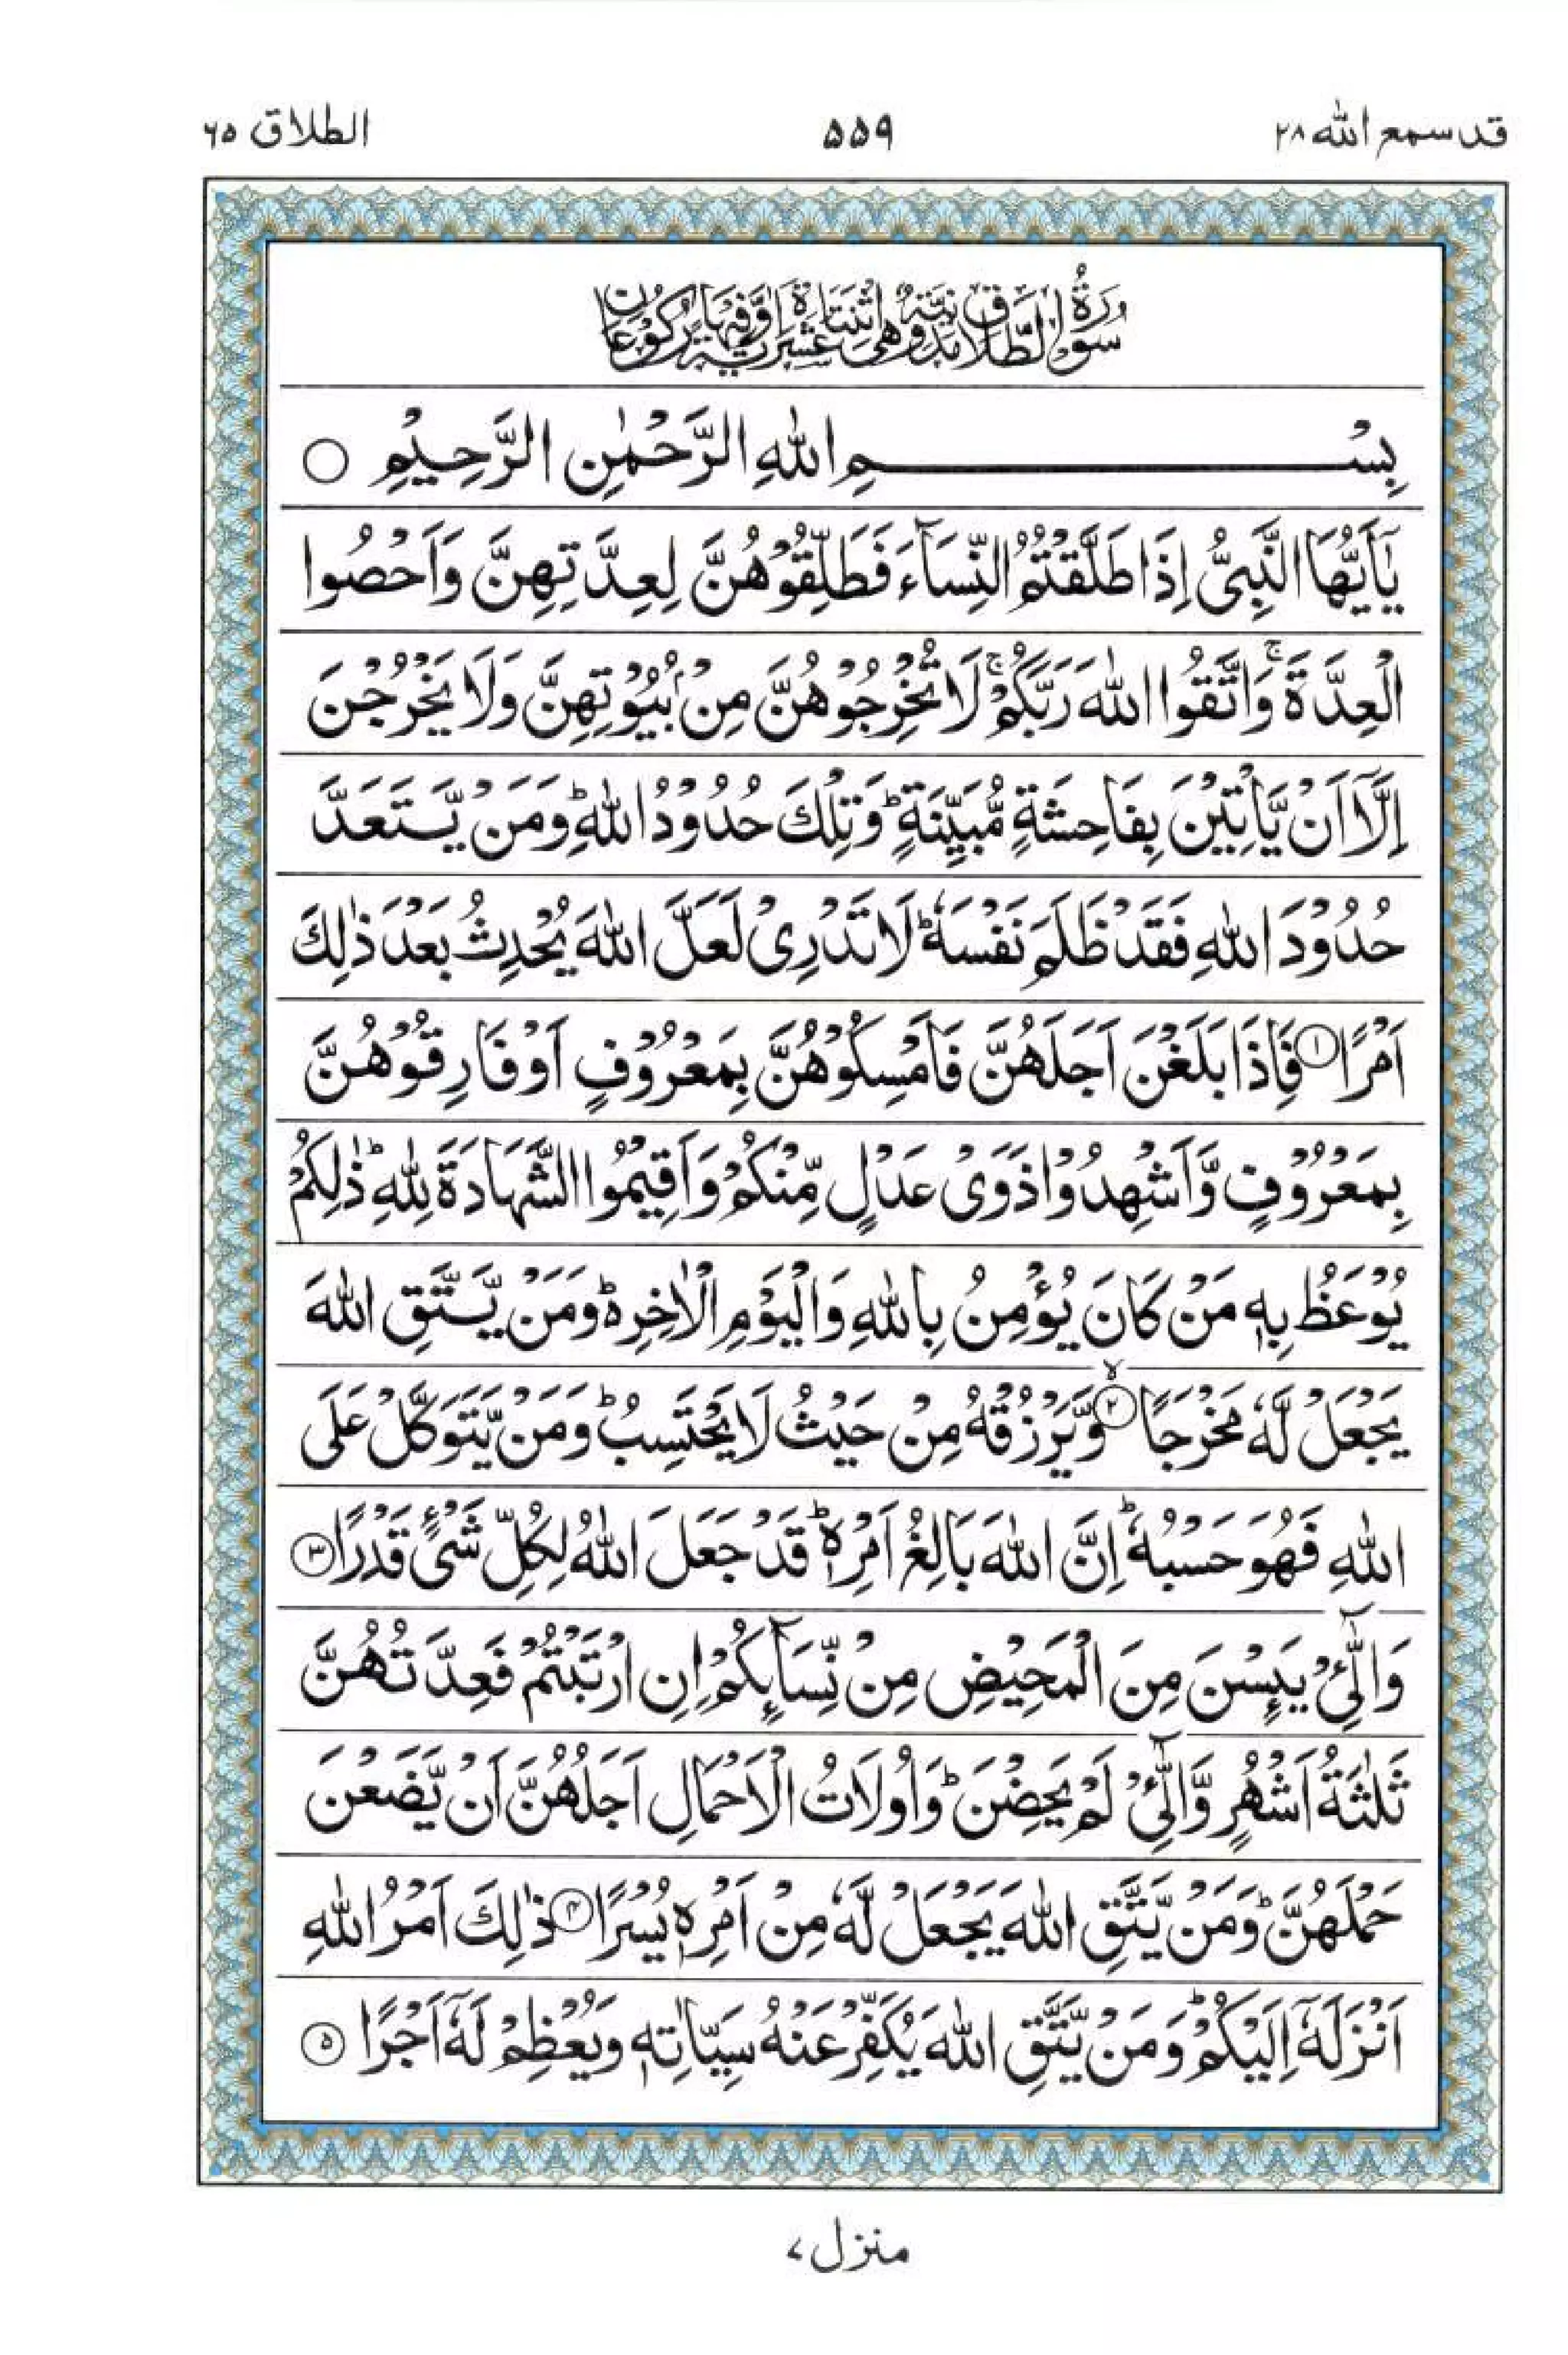 قد سمع الله ٢٨
۵۵۹
الطلاق ۶۵
سُوْرَةُ الطَّلَاقِ مَدَنِيَّةٌ وَّهِيَ اثْنَتَا عَشْرَةَ اٰيَةً وَّفِيْهَا رُكُوْعَانِ
بِسْمِ اللهِ الرَّحْمٰنِ الرَّحِيْمِ ○
يٰۤاَيُّهَا النَّبِيُّ اِذَا طَلَّقْتُمُ النِّسَآءَ فَطَلِّقُوْهُنَّ لِعِدَّتِهِنَّ وَاَحْصُوا
الْعِدَّةَ ۚ وَاتَّقُوا اللهَ رَبَّكُمْ ۚ لَا تُخْرِجُوْهُنَّ مِنْۢ بُيُوْتِهِنَّ وَلَا يَخْرُجْنَ
اِلَّاۤ اَنْ يَّاْتِيْنَ بِفَاحِشَةٍ مُّبَيِّنَةٍ ؕ وَتِلْكَ حُدُوْدُ اللهِ ؕ وَمَنْ يَّتَعَدَّ
حُدُوْدَ اللهِ فَقَدْ ظَلَمَ نَفْسَهٗ ؕ لَا تَدْرِيْ لَعَلَّ اللهَ يُحْدِثُ بَعْدَ ذٰلِكَ
اَمْرًا ۱ فَاِذَا بَلَغْنَ اَجَلَهُنَّ فَاَمْسِكُوْهُنَّ بِمَعْرُوْفٍ اَوْ فَارِقُوْهُنَّ
بِمَعْرُوْفٍ وَّاَشْهِدُوْا ذَوَيْ عَدْلٍ مِّنْكُمْ وَاَقِيْمُوا الشَّهَادَةَ لِلّٰهِ ؕ ذٰلِكُمْ
يُوْعَظُ بِهٖ مَنْ كَانَ يُؤْمِنُ بِاللهِ وَالْيَوْمِ الْاٰخِرِ ؕ وَمَنْ يَّتَّقِ اللهَ
يَجْعَلْ لَّهٗ مَخْرَجًا ۲ وَّيَرْزُقْهُ مِنْ حَيْثُ لَا يَحْتَسِبُ ؕ وَمَنْ يَّتَوَكَّلْ عَلَى
اللهِ فَهُوَ حَسْبُهٗ ؕ اِنَّ اللهَ بَالِغُ اَمْرِهٖ ؕ قَدْ جَعَلَ اللهُ لِكُلِّ شَيْءٍ قَدْرًا ۳
وَالّٰٓـِٔيْ يَئِسْنَ مِنَ الْمَحِيْضِ مِنْ نِّسَآئِكُمْ اِنِ ارْتَبْتُمْ فَعِدَّتُهُنَّ
ثَلٰثَةُ اَشْهُرٍ وَّالّٰٓـِٔيْ لَمْ يَحِضْنَ ؕ وَاُولَاتُ الْاَحْمَالِ اَجَلُهُنَّ اَنْ يَّضَعْنَ
حَمْلَهُنَّ ؕ وَمَنْ يَّتَّقِ اللهَ يَجْعَلْ لَّهٗ مِنْ اَمْرِهٖ يُسْرًا ۴ ذٰلِكَ اَمْرُ اللهِ
اَنْزَلَهٗۤ اِلَيْكُمْ ؕ وَمَنْ يَّتَّقِ اللهَ يُكَفِّرْ عَنْهُ سَيِّاٰتِهٖ وَيُعْظِمْ لَهٗۤ اَجْرًا ۵
منزل ۷